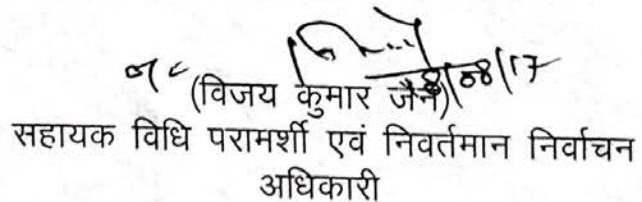 8/08/17
(विजय कुमार जैन)
सहायक विधि परामर्शी एवं निवर्तमान निर्वाचन
अधिकारी